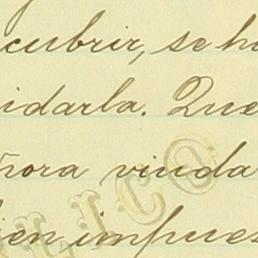 cubrir, se h
idarla. Que
ñora viuda
ien impues
LICO